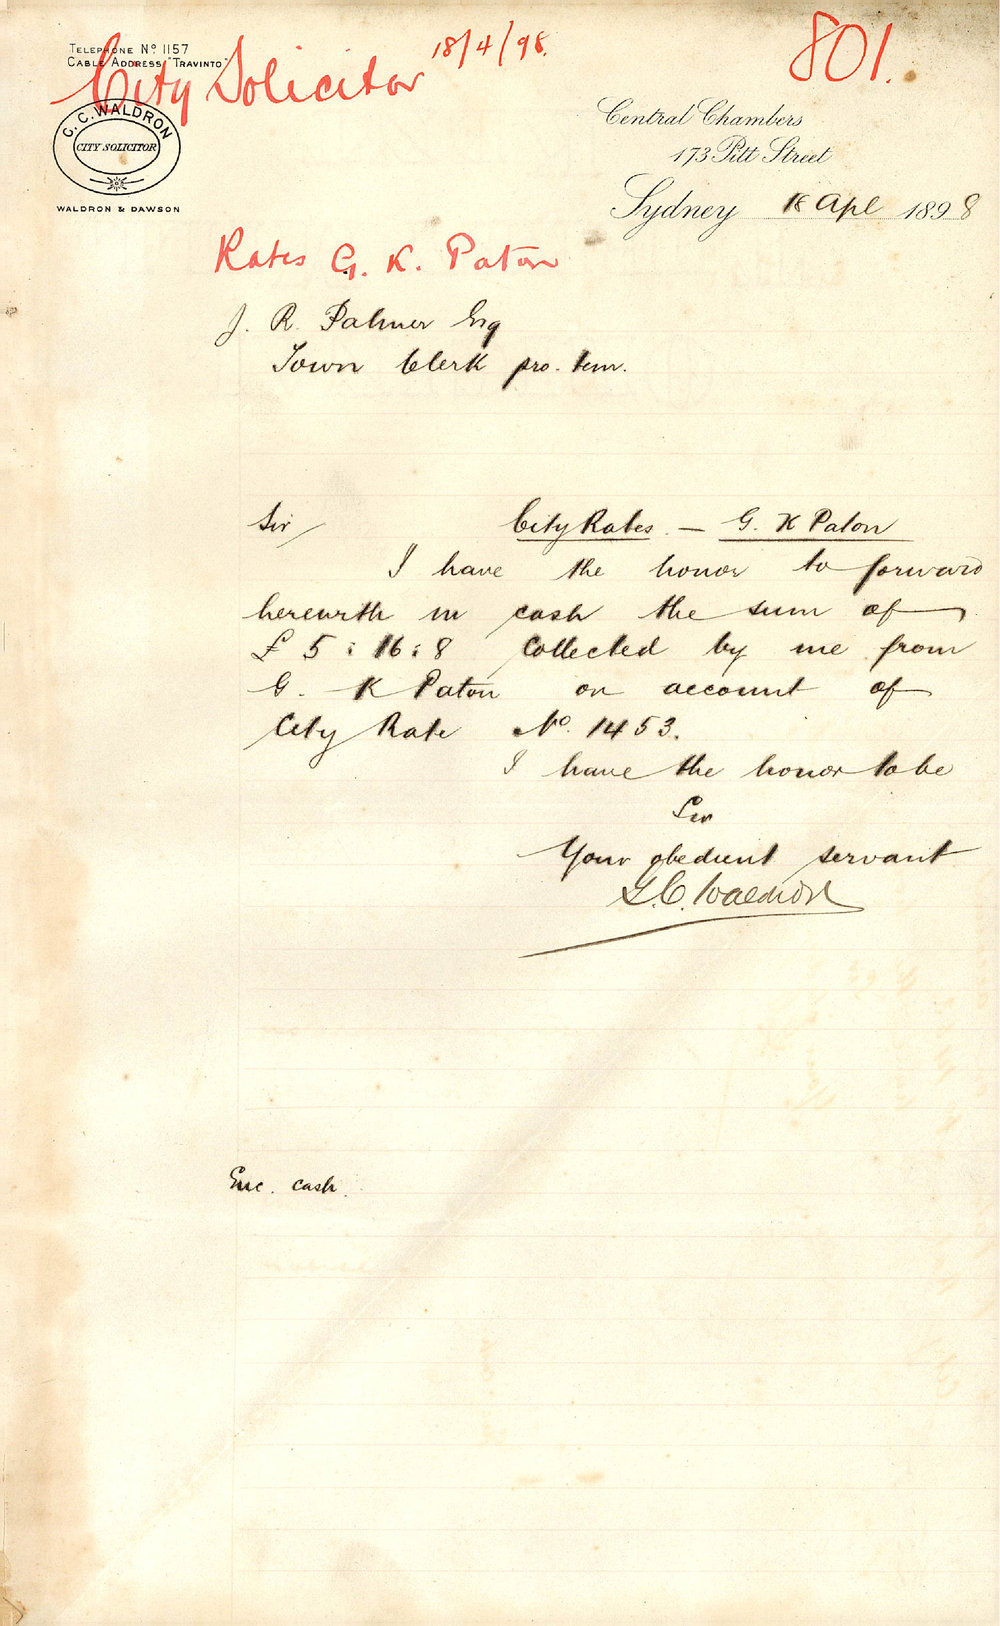 TELEPHONE Nº 1157
CABLE ADDRESS "TRAVINTO"
City Solicitor
18/4/98.
801.
G. C. WALDRON
CITY SOLICITOR
WALDRON & DAWSON
Central Chambers
173 Pitt Street
Sydney 18 Apl 1898
Rates G. K. Paton
J. R. Palmer Esq
Town Clerk pro. tem.
Sir
City Rates. — G. K Paton
I have the honor to forward
herewith in cash the sum of
£ 5 : 16 : 8 collected by me from
G. K Paton on account of
City Rate No. 1453.
I have the honor to be
Sir
Your obedient servant
G. C. Waldron
Enc. cash.